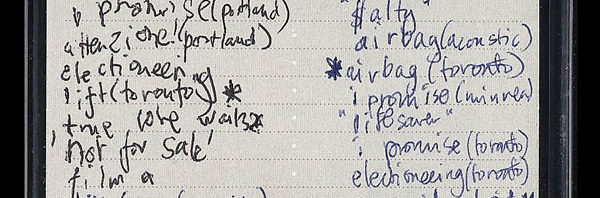 i promise (portland)
attenzione! (portland)
electioneering
lift (toronto) *
true love waits *
'not for sale'
film a
"salty"
airbag (acoustic)
*airbag (toronto)
i promise (minnea)
"lifesaver"
i promise (toronto)
electioneering (toronto)